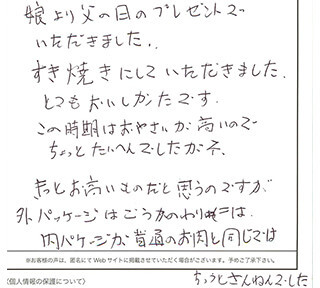 娘より父の日のプレゼントで
いただきました。
すき焼きにしていただきました。
とてもおいしかったです。
この時期はおやさいが高いので
ちょっとたいへんでしたがネ、
きっとお高いものだと思うのですが
外パッケージはごうかのわりには
内パケージが普通のお肉と同じでは
ちょっとざんねんでした
※お客様の声は、匿名にてWebサイトに掲載させていただく場合がございます。予めご了承下さい。
(個人情報の保護について)